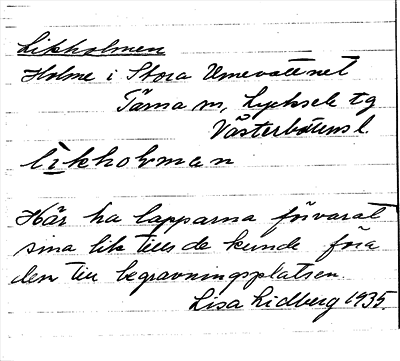 Likholmen
Holme i Stora Umevattnet
Tärna sn, Lycksele tg
Västerbottens l.
likholman
Här ha lapparna förvarat
sina lik tills de kunde föra
den till begravningsplatsen.
Lisa Lidberg 1935.